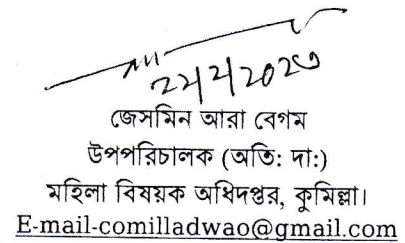 ২২/২/২০২৩
জেসমিন আরা বেগম
উপপরিচালক (অতি: দা:)
মহিলা বিষয়ক অধিদপ্তর, কুমিল্লা।
E-mail-comilladwao@gmail.com